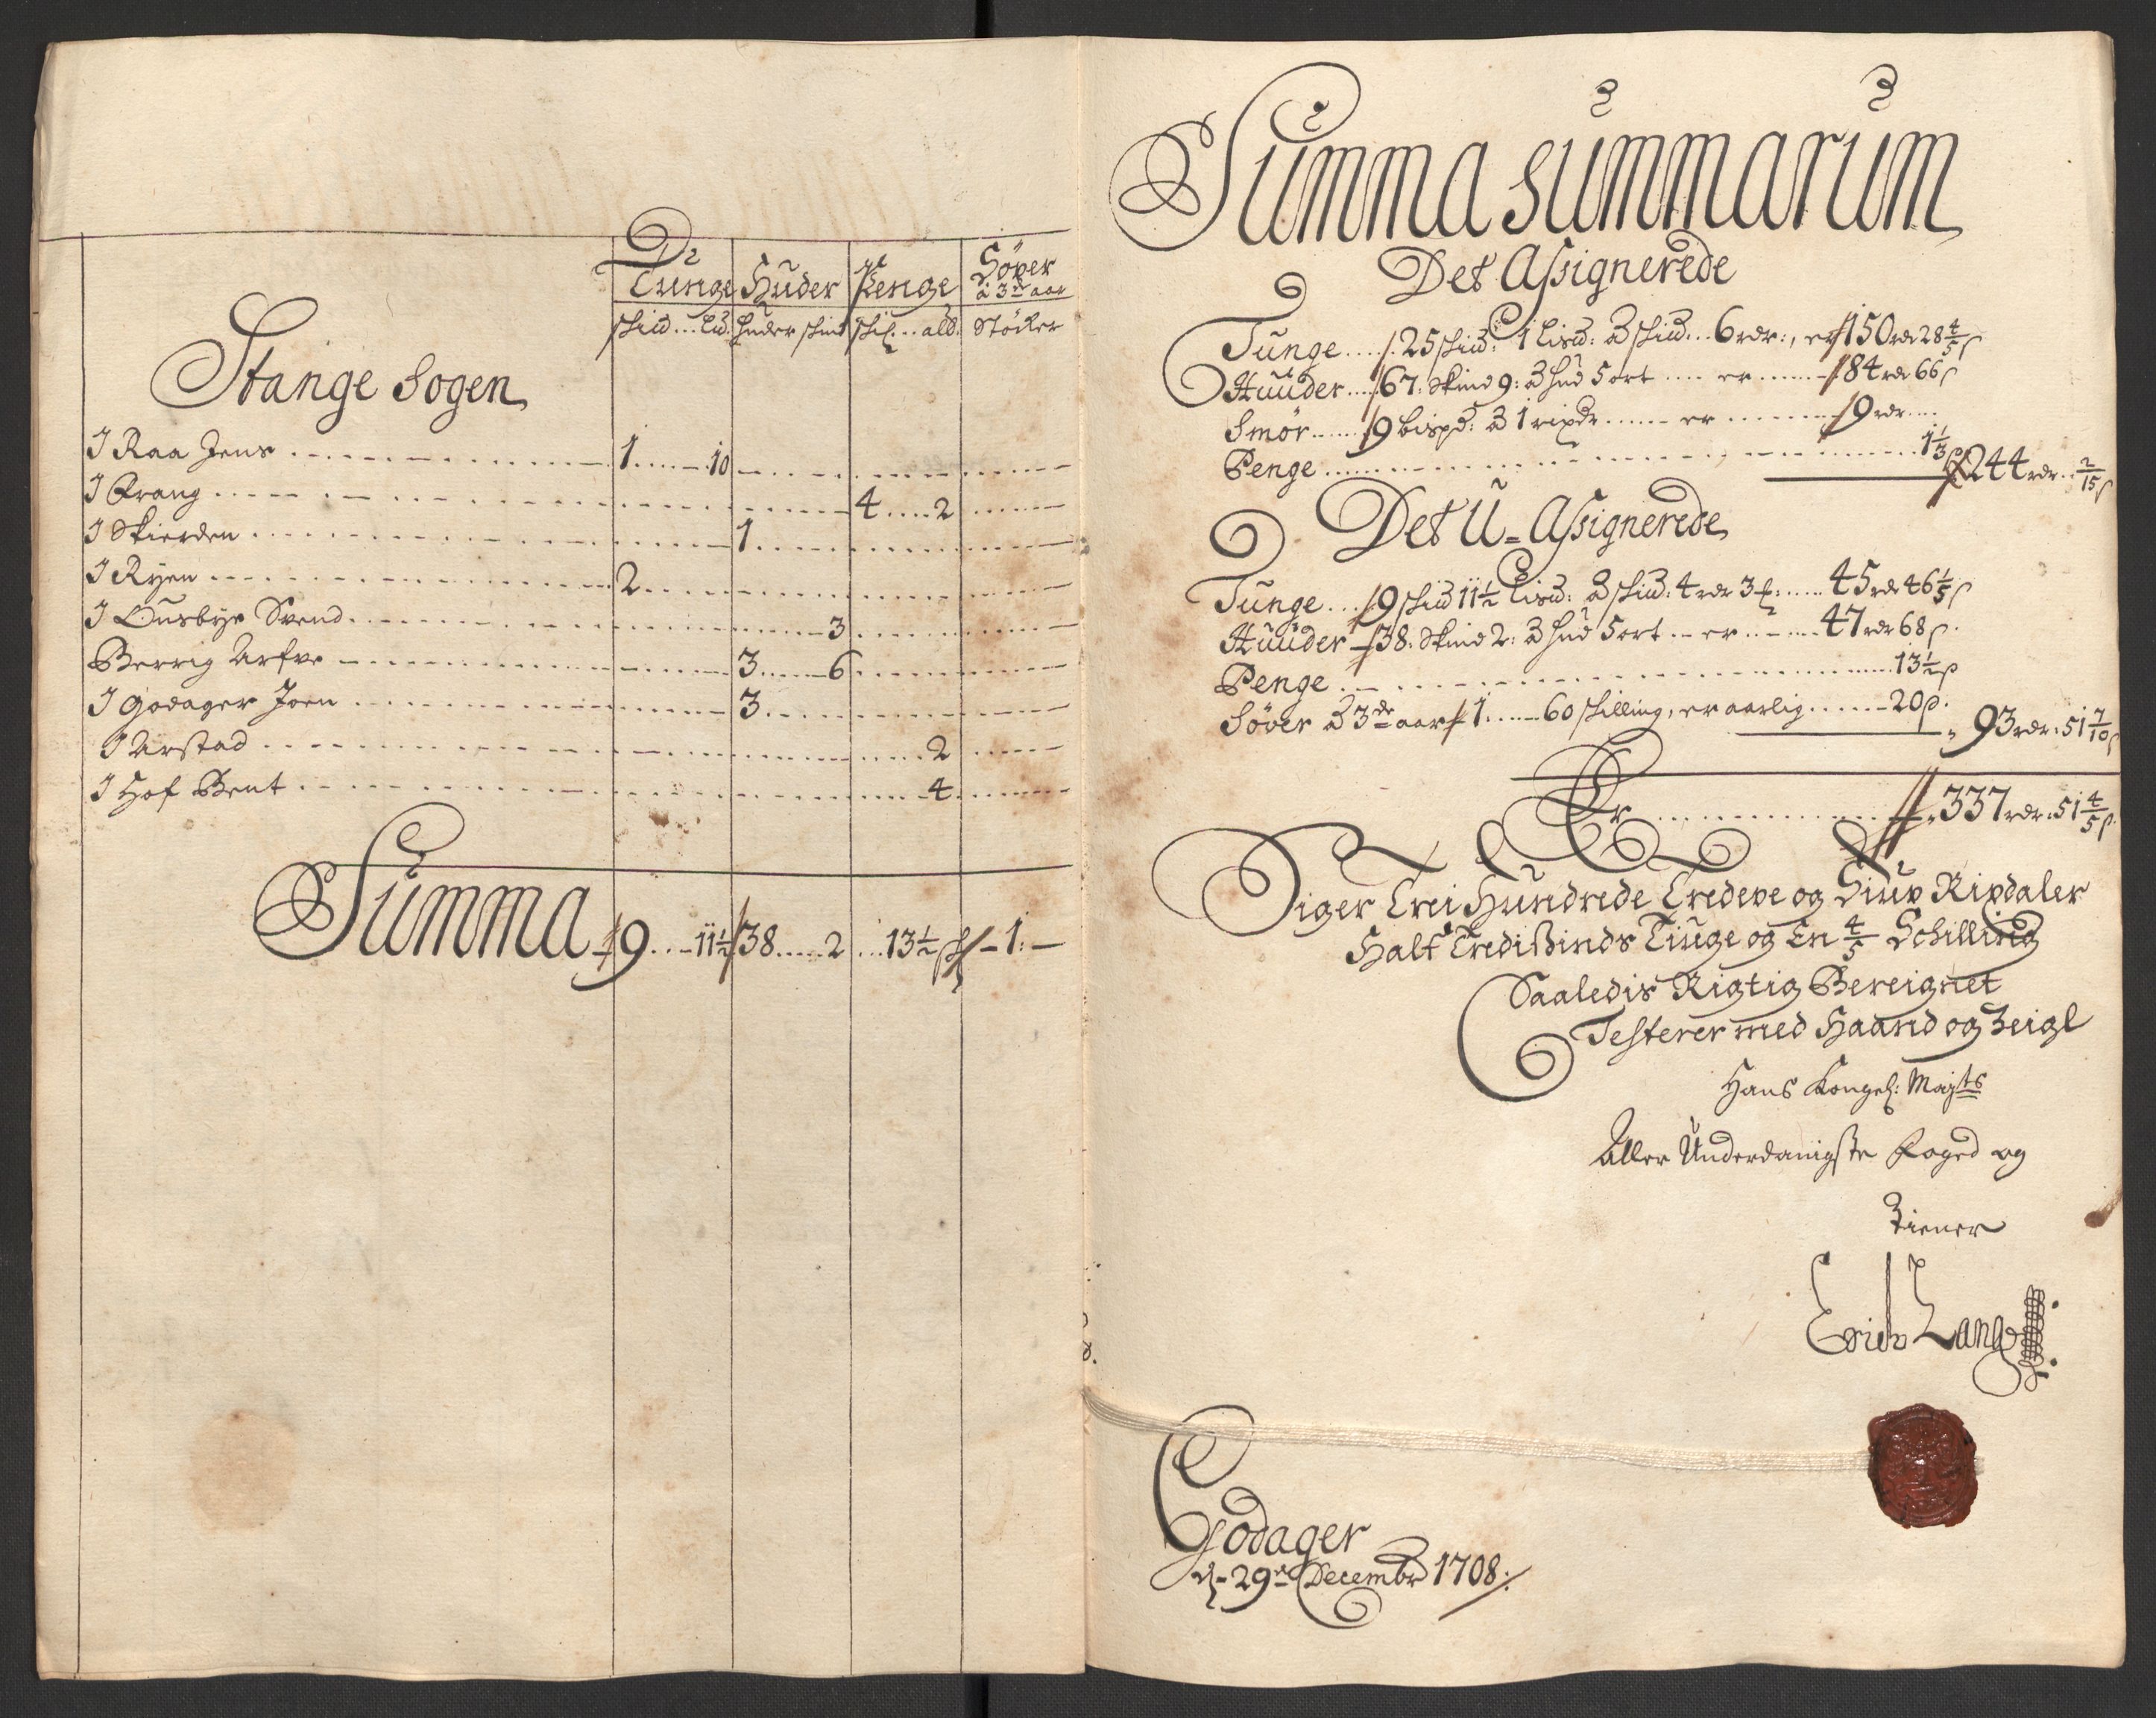 Tunge Huder Penge Söver
à 3de aar
skid ... Lid. Huder skind skil. .. alb. Støcker
Stange Sogen
I Raa Jens 1 ..... 10
I Frang 4 ..... 2
I Skierden 1
I Ryen 2
I Ousbye Svend 3
Berrig Arfve 3 ..... 6
I Godager Joen 3
I Arstad 2
I Hof Bent 4
Summa 9 ... 11½ 38 ..... 2 ... 13½ ß - 1: -
Summa summarum
Det Assignerede
Tunge .... 25 skid: 1 Lisd: à skid... 6 rdr:, er 150 rdr 28 4/5 ß
Huuder .... 67: Skind 9: à hud 5 ort .... er ...... 84 rdr 66 ß
Smør ...... 9 bispd: à 1 rixdr ...... er ........ 9 rdr ....
Penge ........ 1 1/3 ß 244 rdr .. 2/15 ß
Det U=Assignerede
Tunge ... 9 skid 11½ Lisd: à skid: 4 rdr 3 ..... 45 rdr 46 1/5 ß
Huuder - 38: Skind 2: à hud 5 ort ... er ...... 47 rdr 68 ß.
Penge ........ 13½ ß
Söver à 3de aar 1 ..... 60 skilling, er aarlig ...... 20 ß. 93 rdr: 51 7/10 ß
Er ........ 337 rdr: 51 4/5 ß.
Siger Trei Hundrede Tredeve og Siuv Rixdaler
Halftredißinds Tiuge og En 4/5 Schilling
Saaledis Rigtig Bereignet
Testerer med Haand og Zeigl
Hans Kongel: Mayts
Aller Underdanigste Foged og
Tiener
Erich Lang
Godager
d. 29de Decembr 1708: